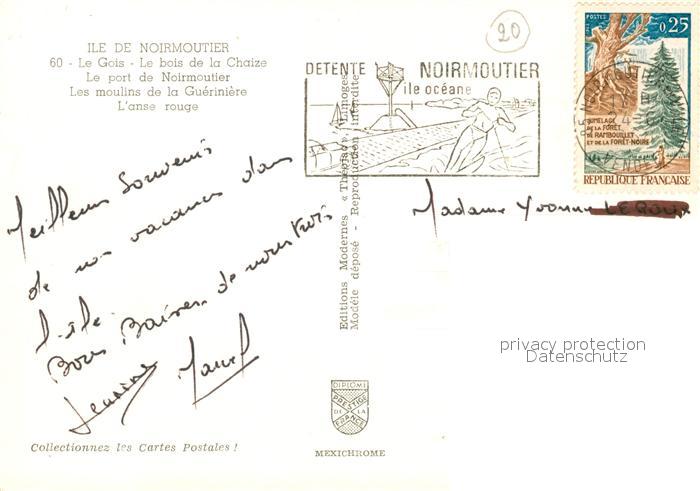 ILE DE NOIRMOUTIER
60 - Le Gois - Le bois de la Chaize
Le port de Noirmoutier
Les moulins de la Guérinière
L'anse rouge
20
DETENTE NOIRMOUTIER
ile océane
POSTES 0,25
JUMELAGE
DE LA FORÊT
DE RAMBOUILLET
ET DE LA FORÊT-NOIRE
REPUBLIQUE FRANÇAISE
Meilleurs Souvenirs
de nos vacances dans
l'île
Bons Baisers de nous trois
Marcel
Madame Yvonne
Editions Modernes « Théojac » Limoges
Modèle déposé - Reproduction interdite
privacy protection
Datenschutz
DIPLOME
PRESTIGE
DE LA
FRANCE
Collectionnez les Cartes Postales !
MEXICHROME